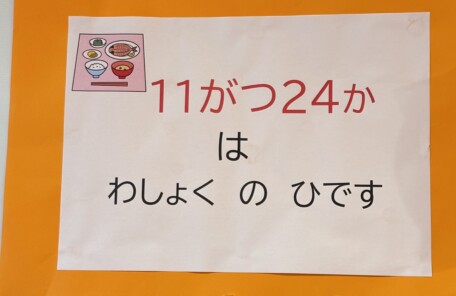 11がつ24か
は
わしょく の ひです